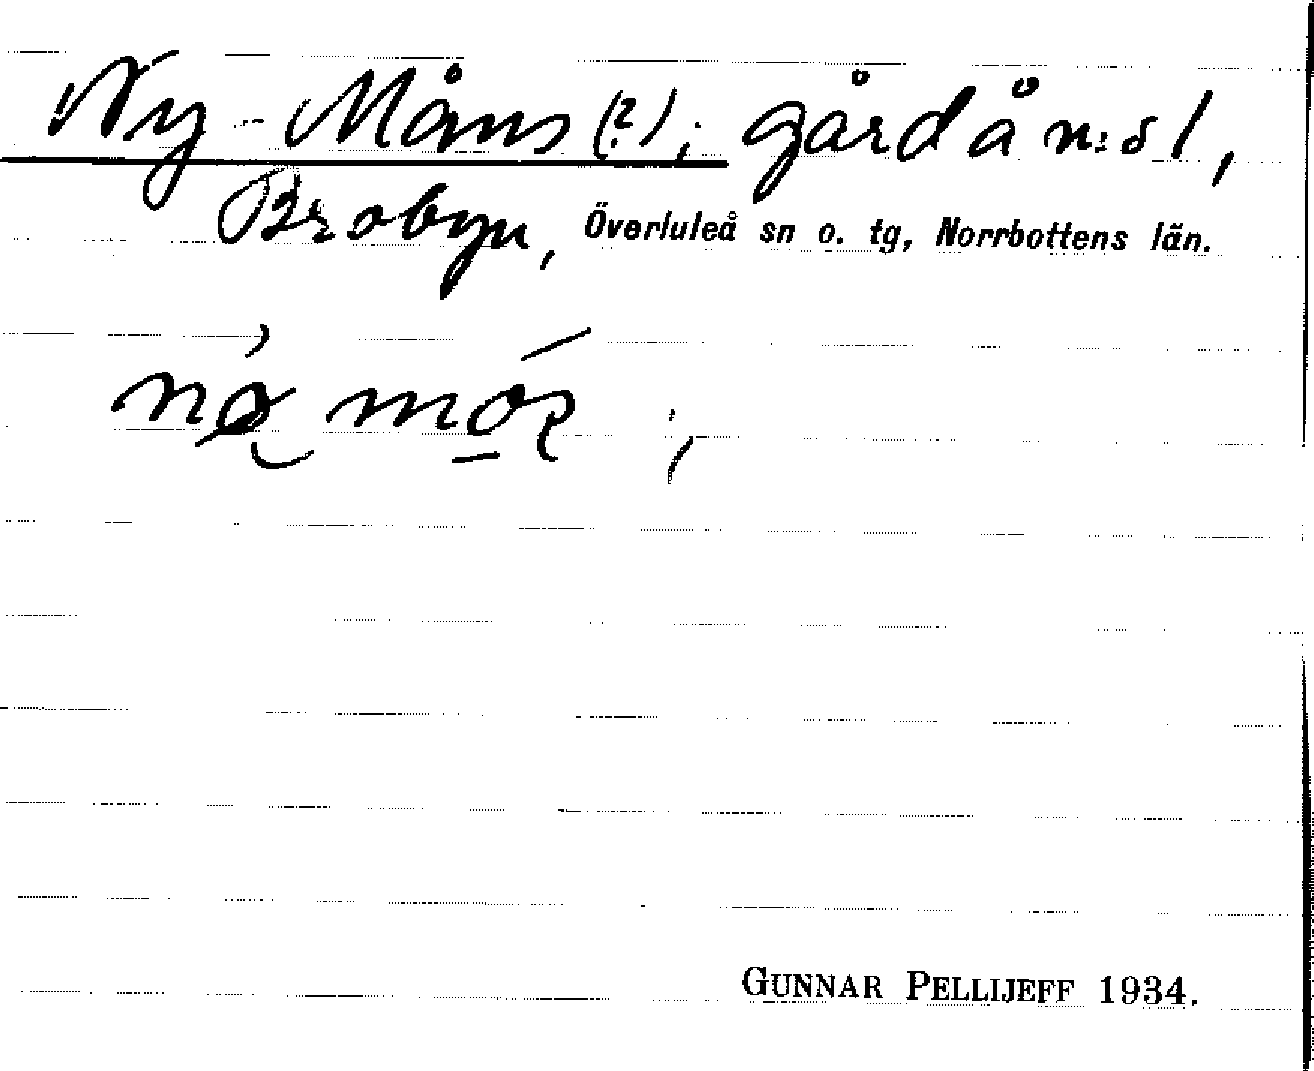 Ny-Måns (?), gård å n:s 1,
Brobyn, Överluleå sn o. tg, Norrbottens län.
GUNNAR PELLIJEFF 1934.